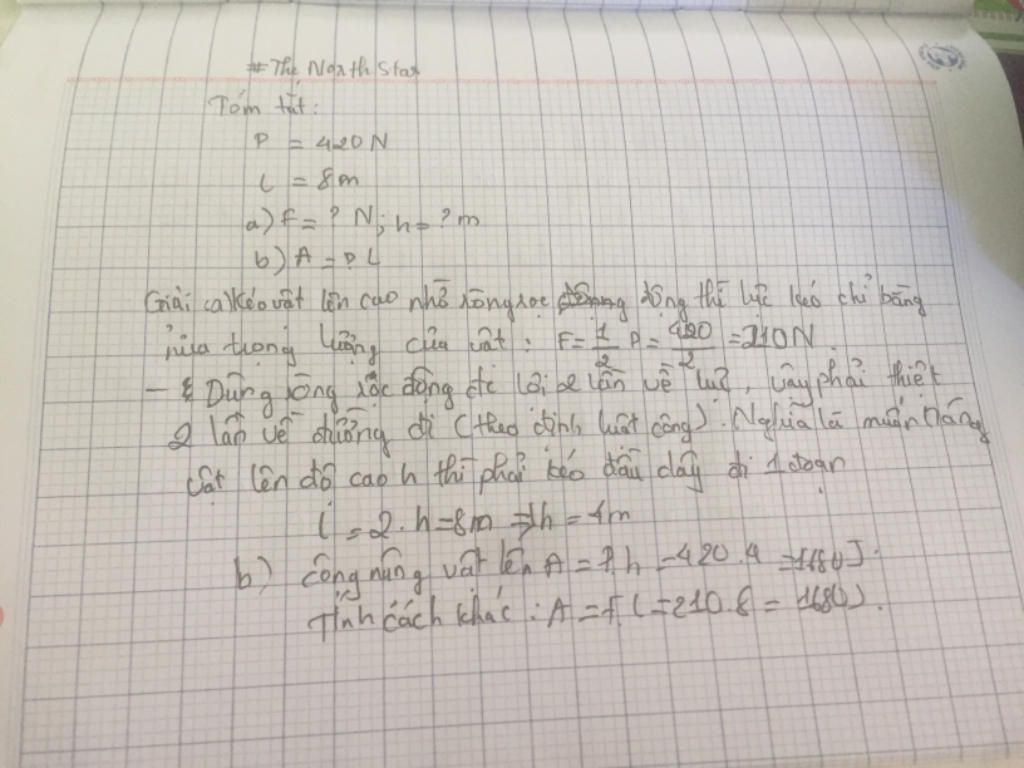 # The North Star
Tóm tắt:
P = 420N
l = 8m
a) F = ? N; h = ? m
b) A = ? L
Giải a) Kéo vật lên cao nhờ ròng rọc động thì lực kéo chỉ bằng
nửa trọng lượng của vật: F = 1/2 P = 420/2 = 210N.
- Dùng ròng rọc động đc lợi 2 lần về lực, vậy phải thiệt
2 lần về đường đi (theo định luật công). Nghĩa là muốn nâng
vật lên độ cao h thì phải kéo đầu dây đi 1 đoạn
l = 2.h = 8m => h = 4m
b) Công nâng vật lên A = P.h = 420.4 = 1680J.
Tính cách khác: A = F.l = 210.8 = 1680J.